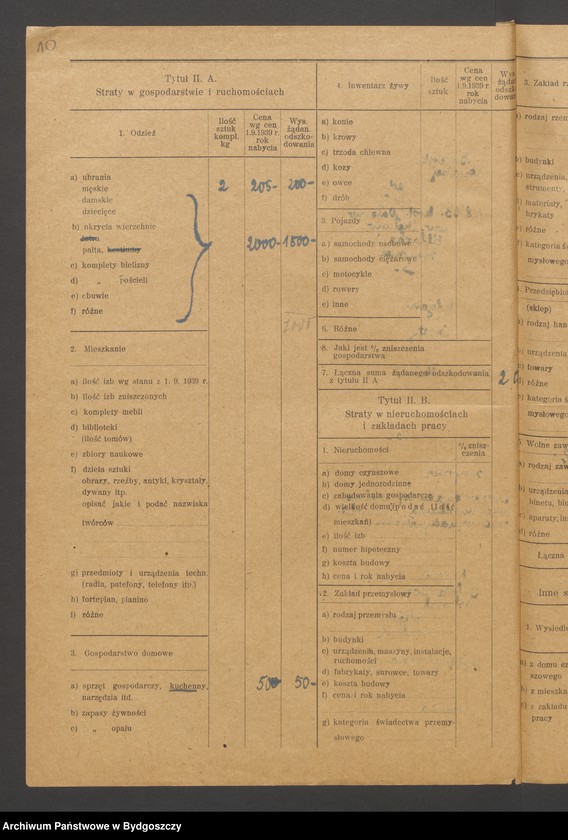 10
Tytuł II. A.
Straty w gospodarstwie i ruchomościach
1. Odzież
Ilość
sztuk
kompl.
kg
Cena
wg cen
1.9.1939 r.
rok
nabycia
Wys.
żądan.
odszko-
dowania
a) ubrania
męskie 2 205- 200-
damskie
dziecięce
b) okrycia wierzchnie
palta, kostiumy 2000- 1500-
c) komplety bielizny
d) „ pościeli
e) obuwie
f) różne
2. Mieszkanie
a) ilość izb wg stanu z 1. 9. 1939 r.
b) ilość izb zniszczonych
c) komplety mebli
d) biblioteki
(ilość tomów)
e) zbiory naukowe
f) dzieła sztuki
obrazy, rzeźby, antyki, kryształy,
dywany itp.
opisać jakie i podać nazwiska
twórców
g) przedmioty i urządzenia techn.
(radia, patefony, telefony itp.)
h) fortepian, pianino
i) różne
3. Gospodarstwo domowe
a) sprzęt gospodarczy, kuchenny, 50 50-
narzędzia itd.
b) zapasy żywności
c) „ opału
4. Inwentarz żywy
Ilość
sztuk
Cena
wg cen
1.9.1939 r.
rok
nabycia
Wys.
żądan.
odszko-
dowania
a) konie
b) krowy
c) trzoda chlewna
d) kozy
e) owce
f) drób
5. Pojazdy
a) samochody osobowe
b) samochody ciężarowe
c) motocykle
d) rowery
e) inne
6. Różne
8. Jaki jest % zniszczenia
gospodarstwa
7. Łączna suma żądanego odszkodowania
z tytułu II A
Tytuł II. B.
Straty w nieruchomościach
i zakładach pracy
1. Nieruchomości
% znisz-
czenia
a) domy czynszowe
b) domy jednorodzinne
c) zabudowania gospodarcze
d) wielkość domu (podać ilość
mieszkań)
e) ilość izb
f) numer hipoteczny
g) koszta budowy
h) cena i rok nabycia
2. Zakład przemysłowy
a) rodzaj przemysłu
b) budynki
c) urządzenia, maszyny, instalacje,
ruchomości
d) fabrykaty, surowce, towary
e) koszta budowy
f) cena i rok nabycia
g) kategoria świadectwa przemy-
słowego
3. Zakład
a) rodzaj rzem
b) budynki
c) urządzenia,
strumenty,
d) materiały,
brykaty
e) różne
f) kategoria
mysłowego
4. Przedsiębio
(sklep)
a) rodzaj han
b) urządzenia
c) towary
d) różne
e) kategoria
mysłowego
5. Wolne zaw
a) rodzaj zaw
b) urządzenia
binetu, biu
c) aparaty,
d) różne
Łączna
Inne s
1. Wysiedle
a) z domu
szowego
b) z mieszka
c) z zakładu
pracy
Archiwum Państwowe w Bydgoszczy